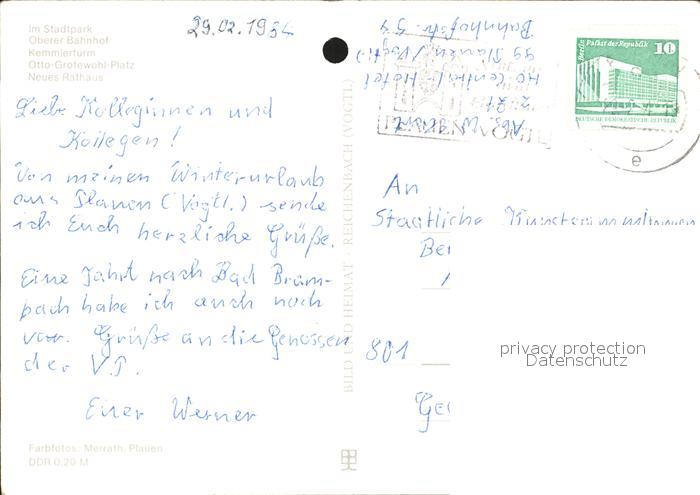 Im Stadtpark
Oberer Bahnhof
Kemmlerturm
Otto-Grotewohl-Platz
Neues Rathaus
29.02.1984
Liebe Kolleginnen und
Kollegen!
Von meinen Winterurlaub
aus Plauen (Vogtl.) sende
ich Euch herzliche Grüße.
Eine Fahrt nach Bad Bram-
bach habe ich auch noch
vor. Grüße an die Genossen
der V.P.
Euer Werner
Farbfotos: Merrath, Plauen
DDR 0,20 M
BILD UND HEIMAT · REICHENBACH (VOGTL)
Abs.
z. Zt.
HO-Central-Hotel
99 Plauen (Vogtl.)
Bahnhofstr.
PLAUEN VOGTL
Berlin Palast der Republik 10
DEUTSCHE DEMOKRATISCHE REPUBLIK
e
An
Staatliche Kunstsammlungen
801
privacy protection
Datenschutz